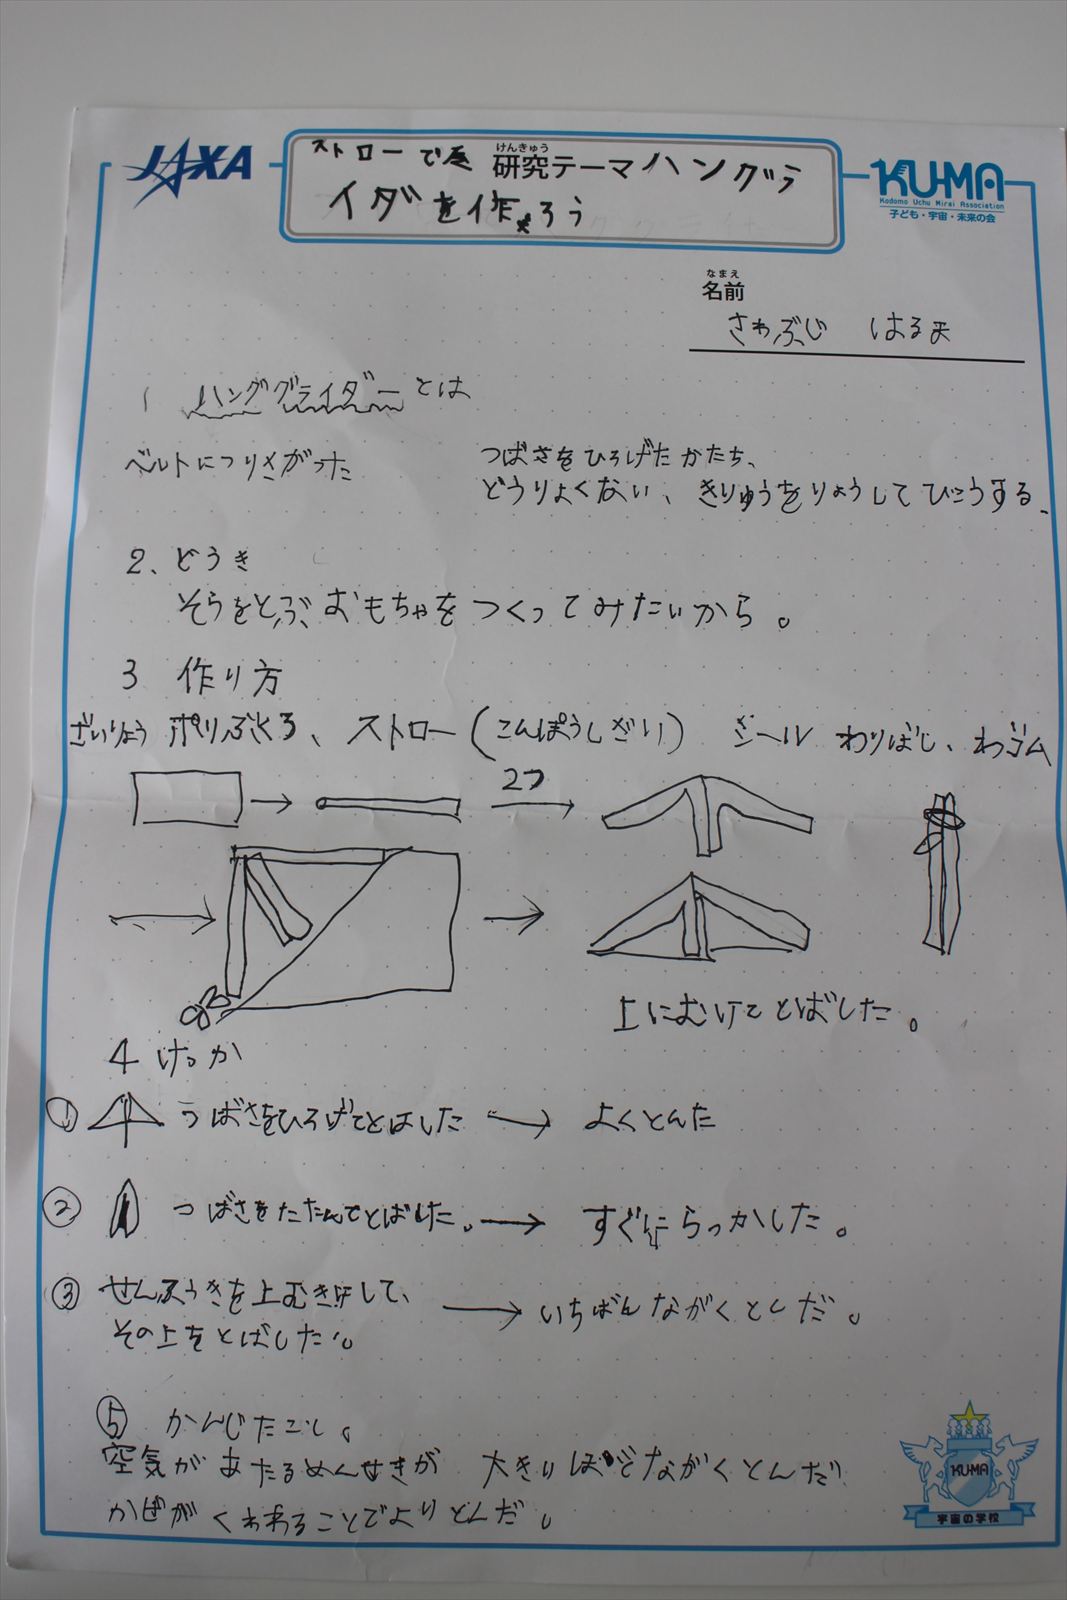 JAXA
ストローで
けんきゅう
研究テーマ ハングラ
イダを作ろう
KU-MA
Kodomo Uchu Mirai Association
子ども・宇宙・未来の会
なまえ
名前
さわぶじ はるま
1 ハンググライダーとは
ベルトにつりさがった つばさをひろげたかたち、
どうりょくない、きりゅうをりようしてひこうする、
2、どうき
そらをとぶおもちゃをつくってみたいから。
3 作り方
ざいりょう ポリぶくろ、ストロー(こんぽうしざい) シール わりばし、わゴム
2つ
上にむけてとばした。
4 けっか
① つばさをひろげてとばした → よくとんだ
② つばさをたたんでとばした。→ すぐにらっかした。
③ せんぷうきを上むきにして、
その上をとばした。 → いちばんながくとんだ。
⑤ かんじたこと。
空気があたるめんせきが 大きいほどながくとんだ
かぜがくわわることでよりとんだ。
KU-MA
宇宙の学校